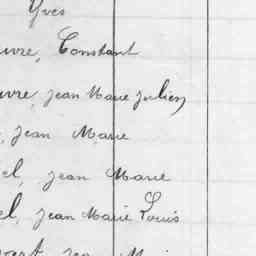 Yves
uvre, Constant
uvre, jean Marie julien
, jean Marie
el, jean Marie
el, jean Marie Louis